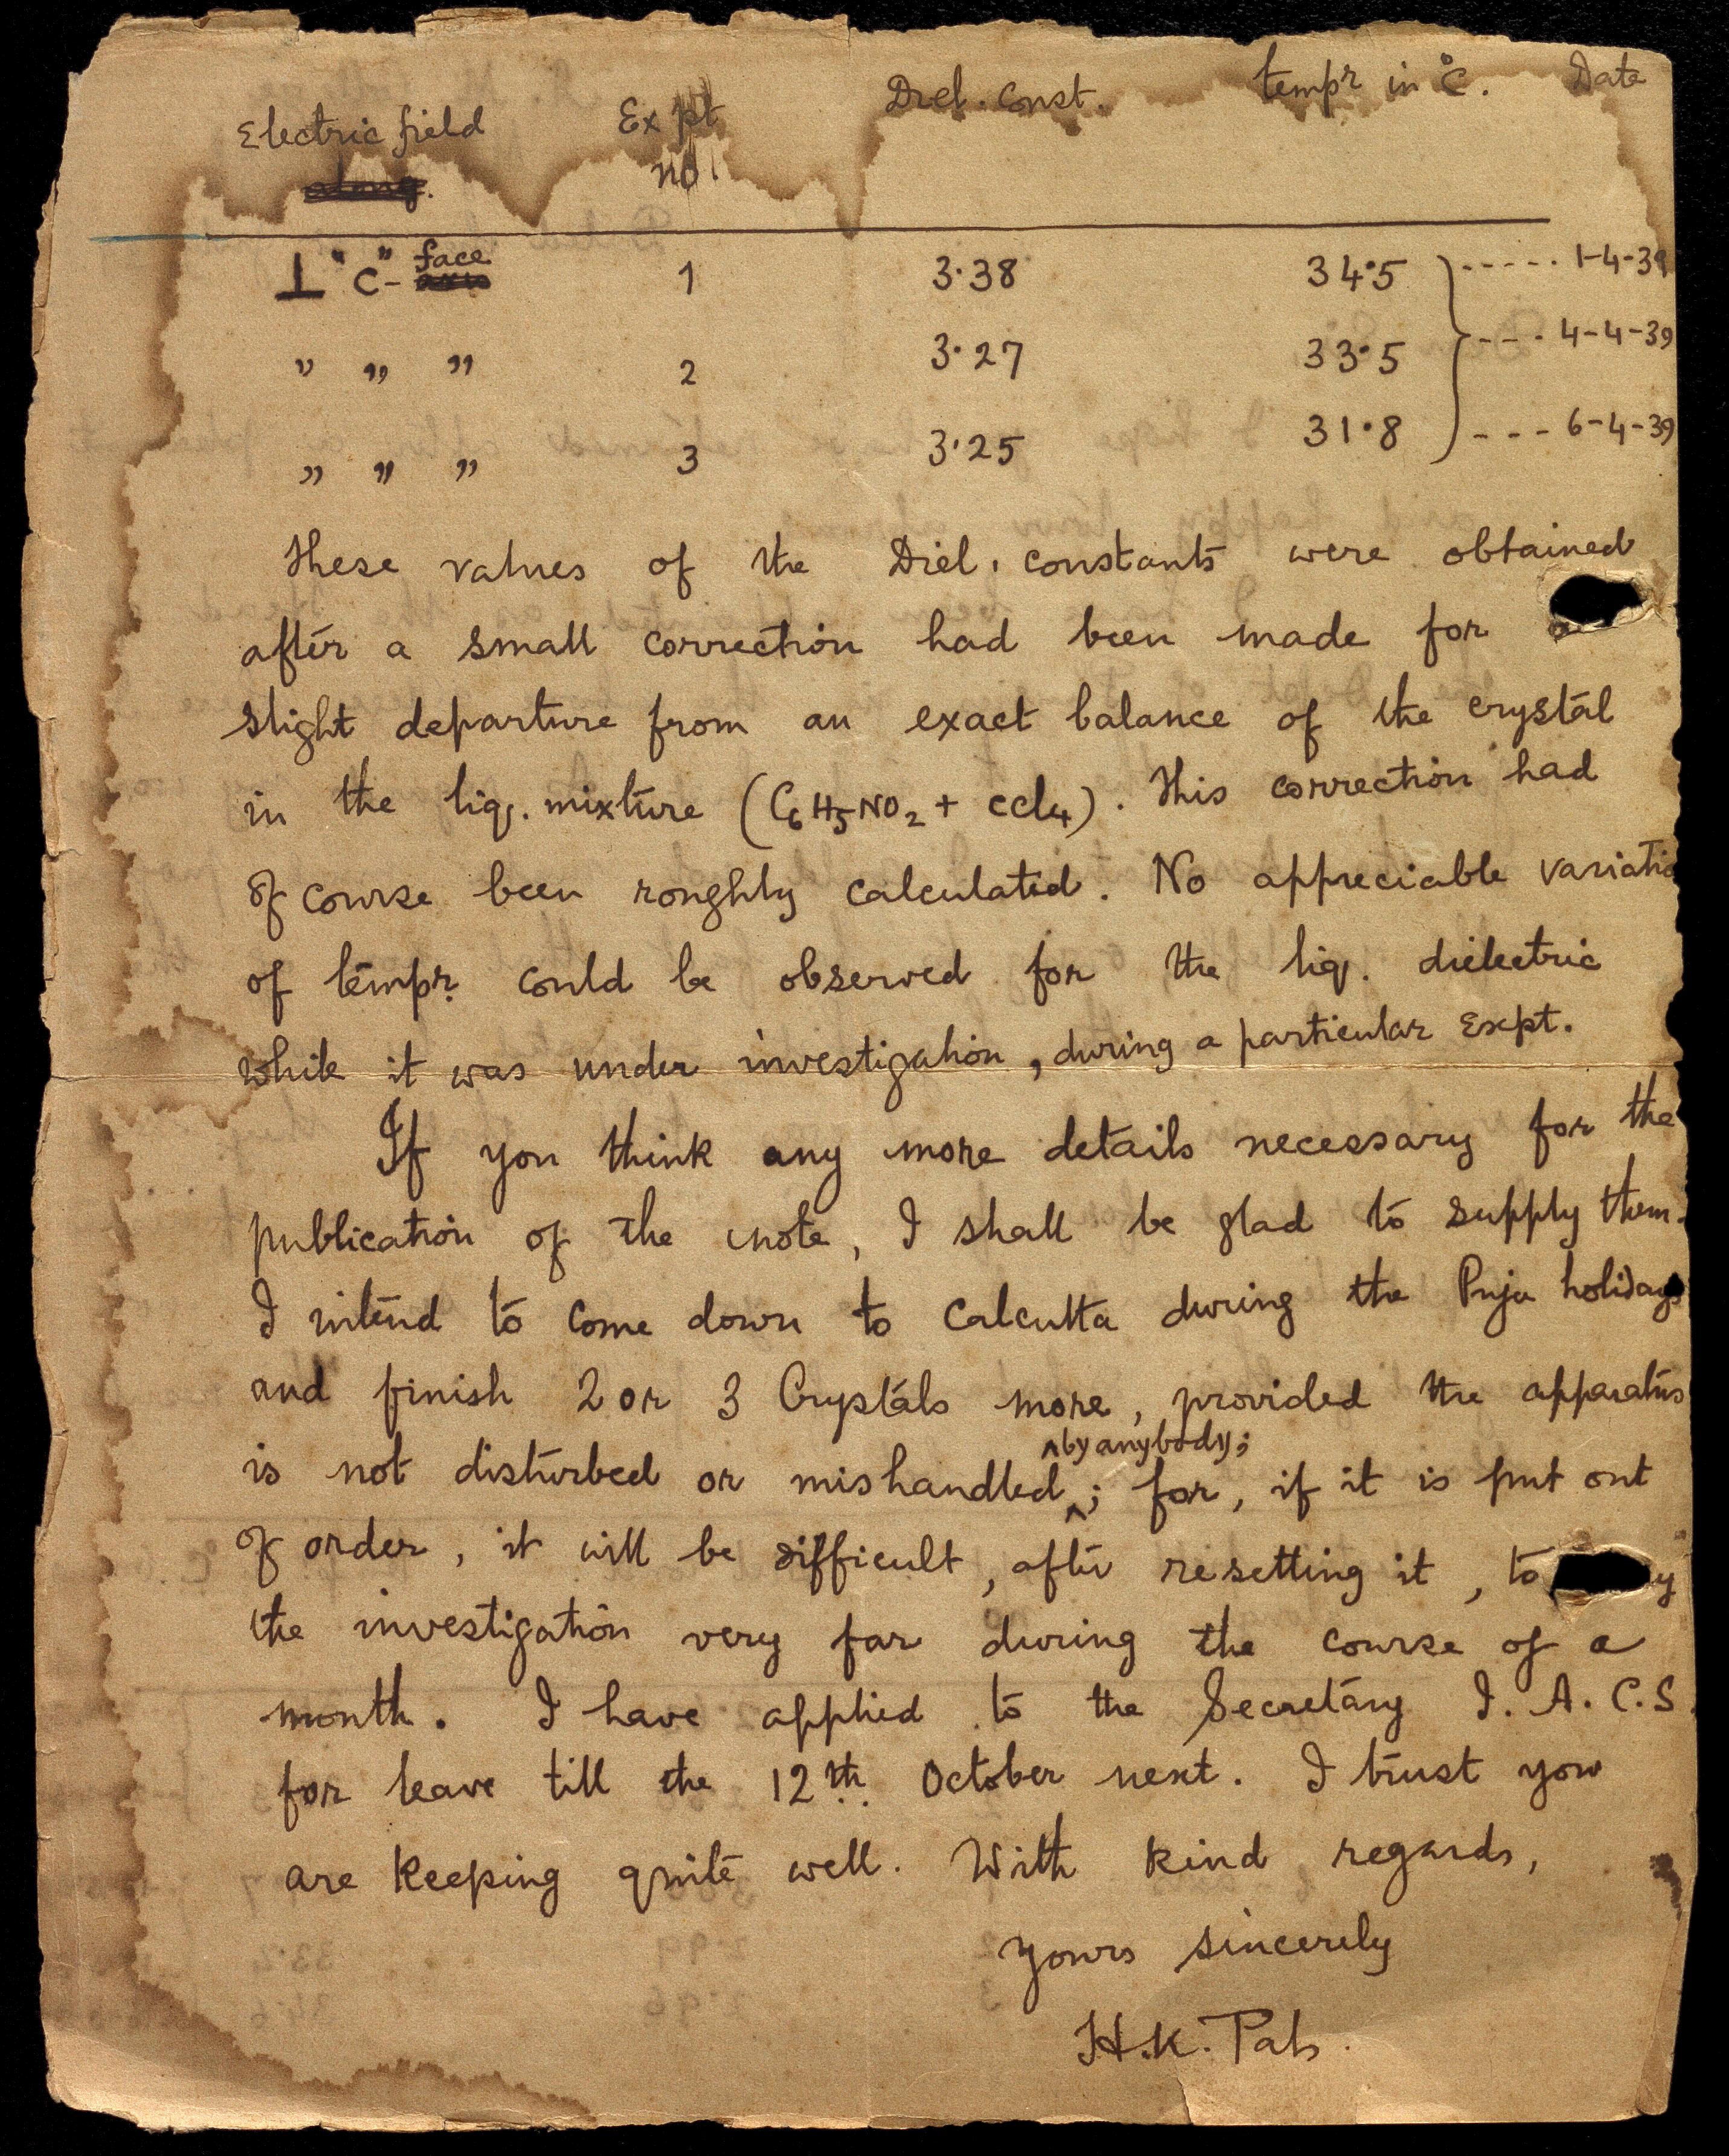 Electric field Expt Diel. Const. tempr in °C. Date
no.
⊥ "C"- face 1 3.38 34.5 ----- 1-4-39
" " " 2 3.27 33.5 --- 4-4-39
" " " 3 3.25 31.8 --- 6-4-39
These values of the Diel. constants were obtained
after a small correction had been made for a
slight departure from an exact balance of the crystal
in the liq. mixture (C₆H₅NO₂ + CCl₄). This correction had
of course been roughly calculated. No appreciable variatio
of tempr. could be observed for the liq. dielectric
while it was under investigation, during a particular Expt.
If you think any more details necessary for the
publication of the note, I shall be glad to supply them.
I intend to come down to Calcutta during the Puja holidays
and finish 2 or 3 Crystals more, provided the apparatus
by anybody;
is not disturbed or mishandled ; for, if it is put out
of order, it will be difficult, after resetting it, to y
the investigation very far during the course of a
month. I have applied to the Secretary I. A. C. S.
for leave till the 12th. October next. I trust you
are keeping quite well. With kind regards,
Yours sincerely
H.K. Pal.